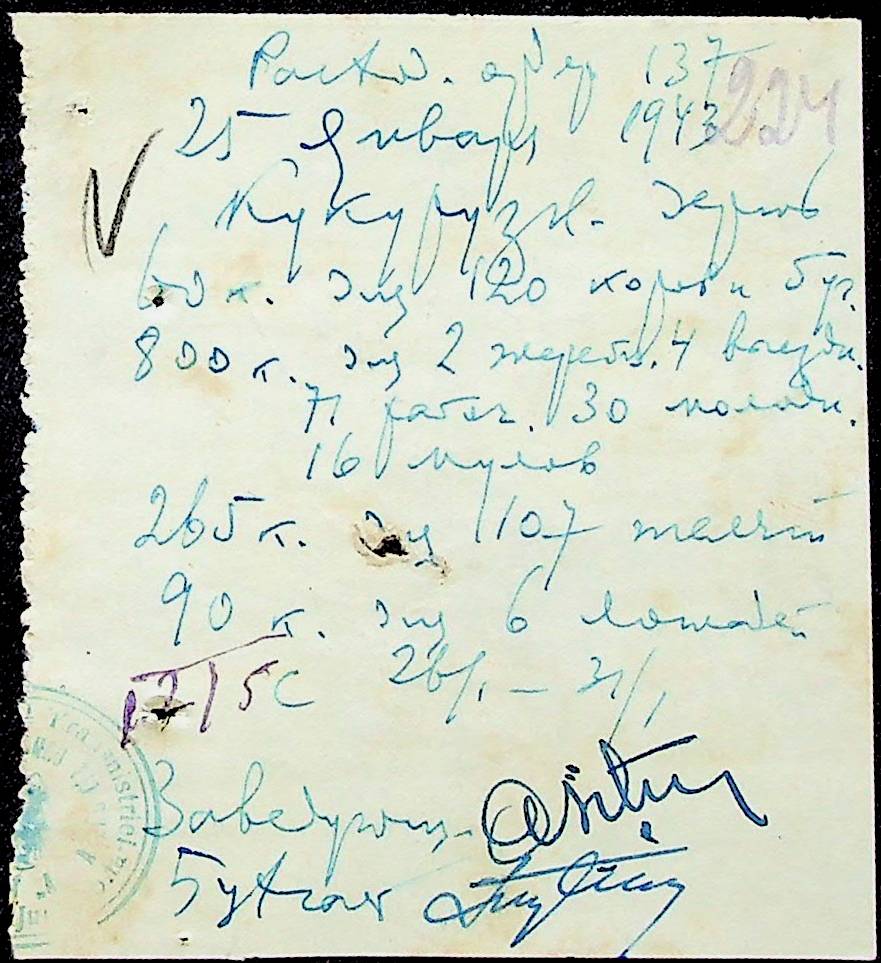 Расход. ордер 137
224
25 Января 1943
Кукурузн. дерть
60 к. для 120 коров и буг.
800 к. для 2 жереб. 4 выездн.
71 рабоч. 30 молодн.
16 мулов
265 к. для 107 телят
90 к. для 6 лошадей
1215 с 26/I – 31/I
Заведующ.
Бухгалт